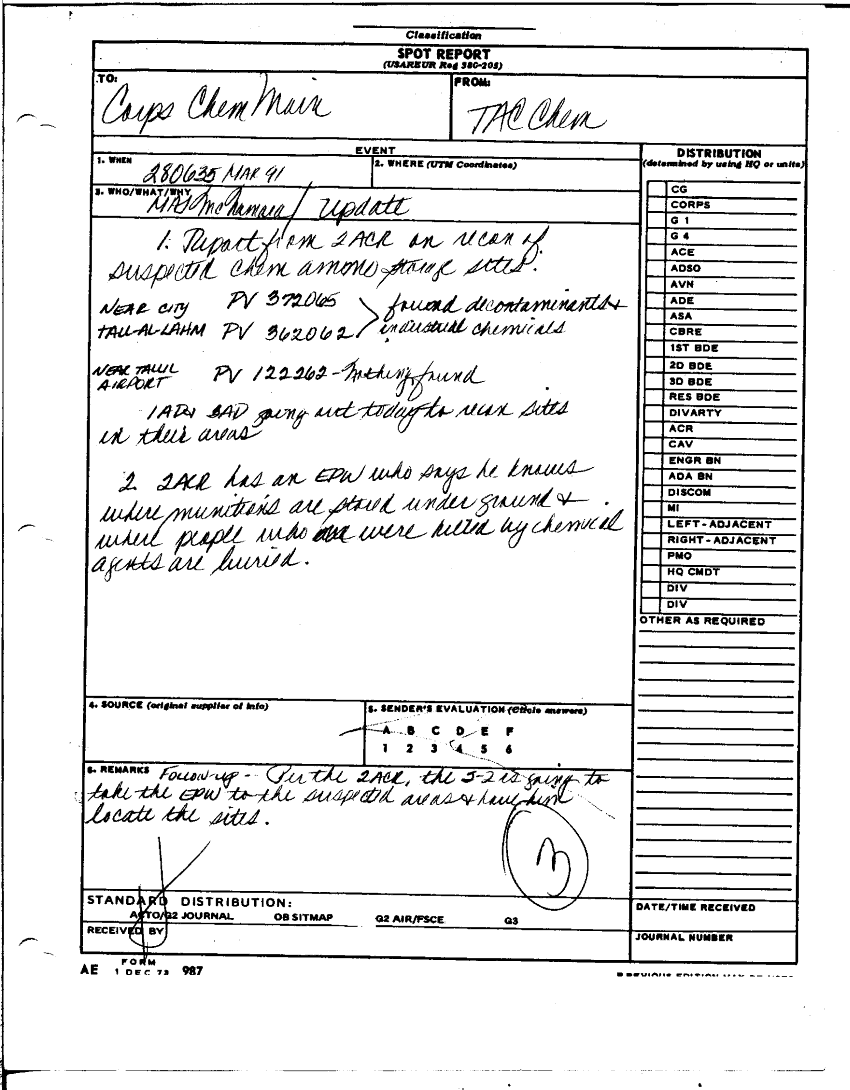 Classification
SPOT REPORT
(USAREUR Reg 380-205)
TO:
Corps Chem Main
FROM:
TAC Chem
EVENT
1. WHEN
280635 MAR 91
2. WHERE (UTM Coordinates)
3. WHO/WHAT/WHY
MAJ McNamara / Update
1. Report from 2ACR on recon of
suspected chem ammo storage sites.
NEAR CITY PV 372065 found decontaminants &
TALL-AL-LAHM PV 362062 industrial chemicals
NEAR TALLIL
AIRPORT PV 122262 - Nothing found
1AD going out today to recon sites
in their areas
2. 2ACR has an EPW who says he knows
where munitions are stored under ground &
where people who were killed by chemical
agents are buried.
4. SOURCE (original supplier of info)
5. SENDER'S EVALUATION (Circle answers)
A B C D E F
1 2 3 4 5 6
6. REMARKS Follow-up - Per the 2ACR, the S-2 is going to
take the EPW to the suspected areas & have him
locate the sites.
3
STANDARD DISTRIBUTION:
G2 JOURNAL OB SITMAP G2 AIR/FSCE G3
RECEIVED BY
DISTRIBUTION
(determined by using HQ or units)
CG
CORPS
G 1
G 4
ACE
ADSO
AVN
ADE
ASA
CBRE
1ST BDE
2D BDE
3D BDE
RES BDE
DIVARTY
ACR
CAV
ENGR BN
ADA BN
DISCOM
MI
LEFT - ADJACENT
RIGHT - ADJACENT
PMO
HQ CMDT
DIV
DIV
OTHER AS REQUIRED
DATE/TIME RECEIVED
JOURNAL NUMBER
AE FORM 1 DEC 73 987